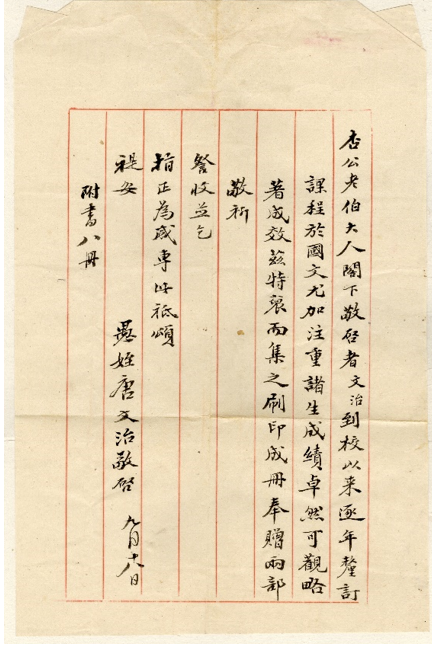 杏公老伯大人閣下敬啓者文治到校以来逐年釐訂
課程於國文尤加注重諸生成績卓然可觀略
著成效茲特裒而集之刷印成冊奉贈兩部
敬祈
詧收並乞
指正為感專此祗頌
禔安
愚姪唐文治敬啓 九月十八日
附書八冊